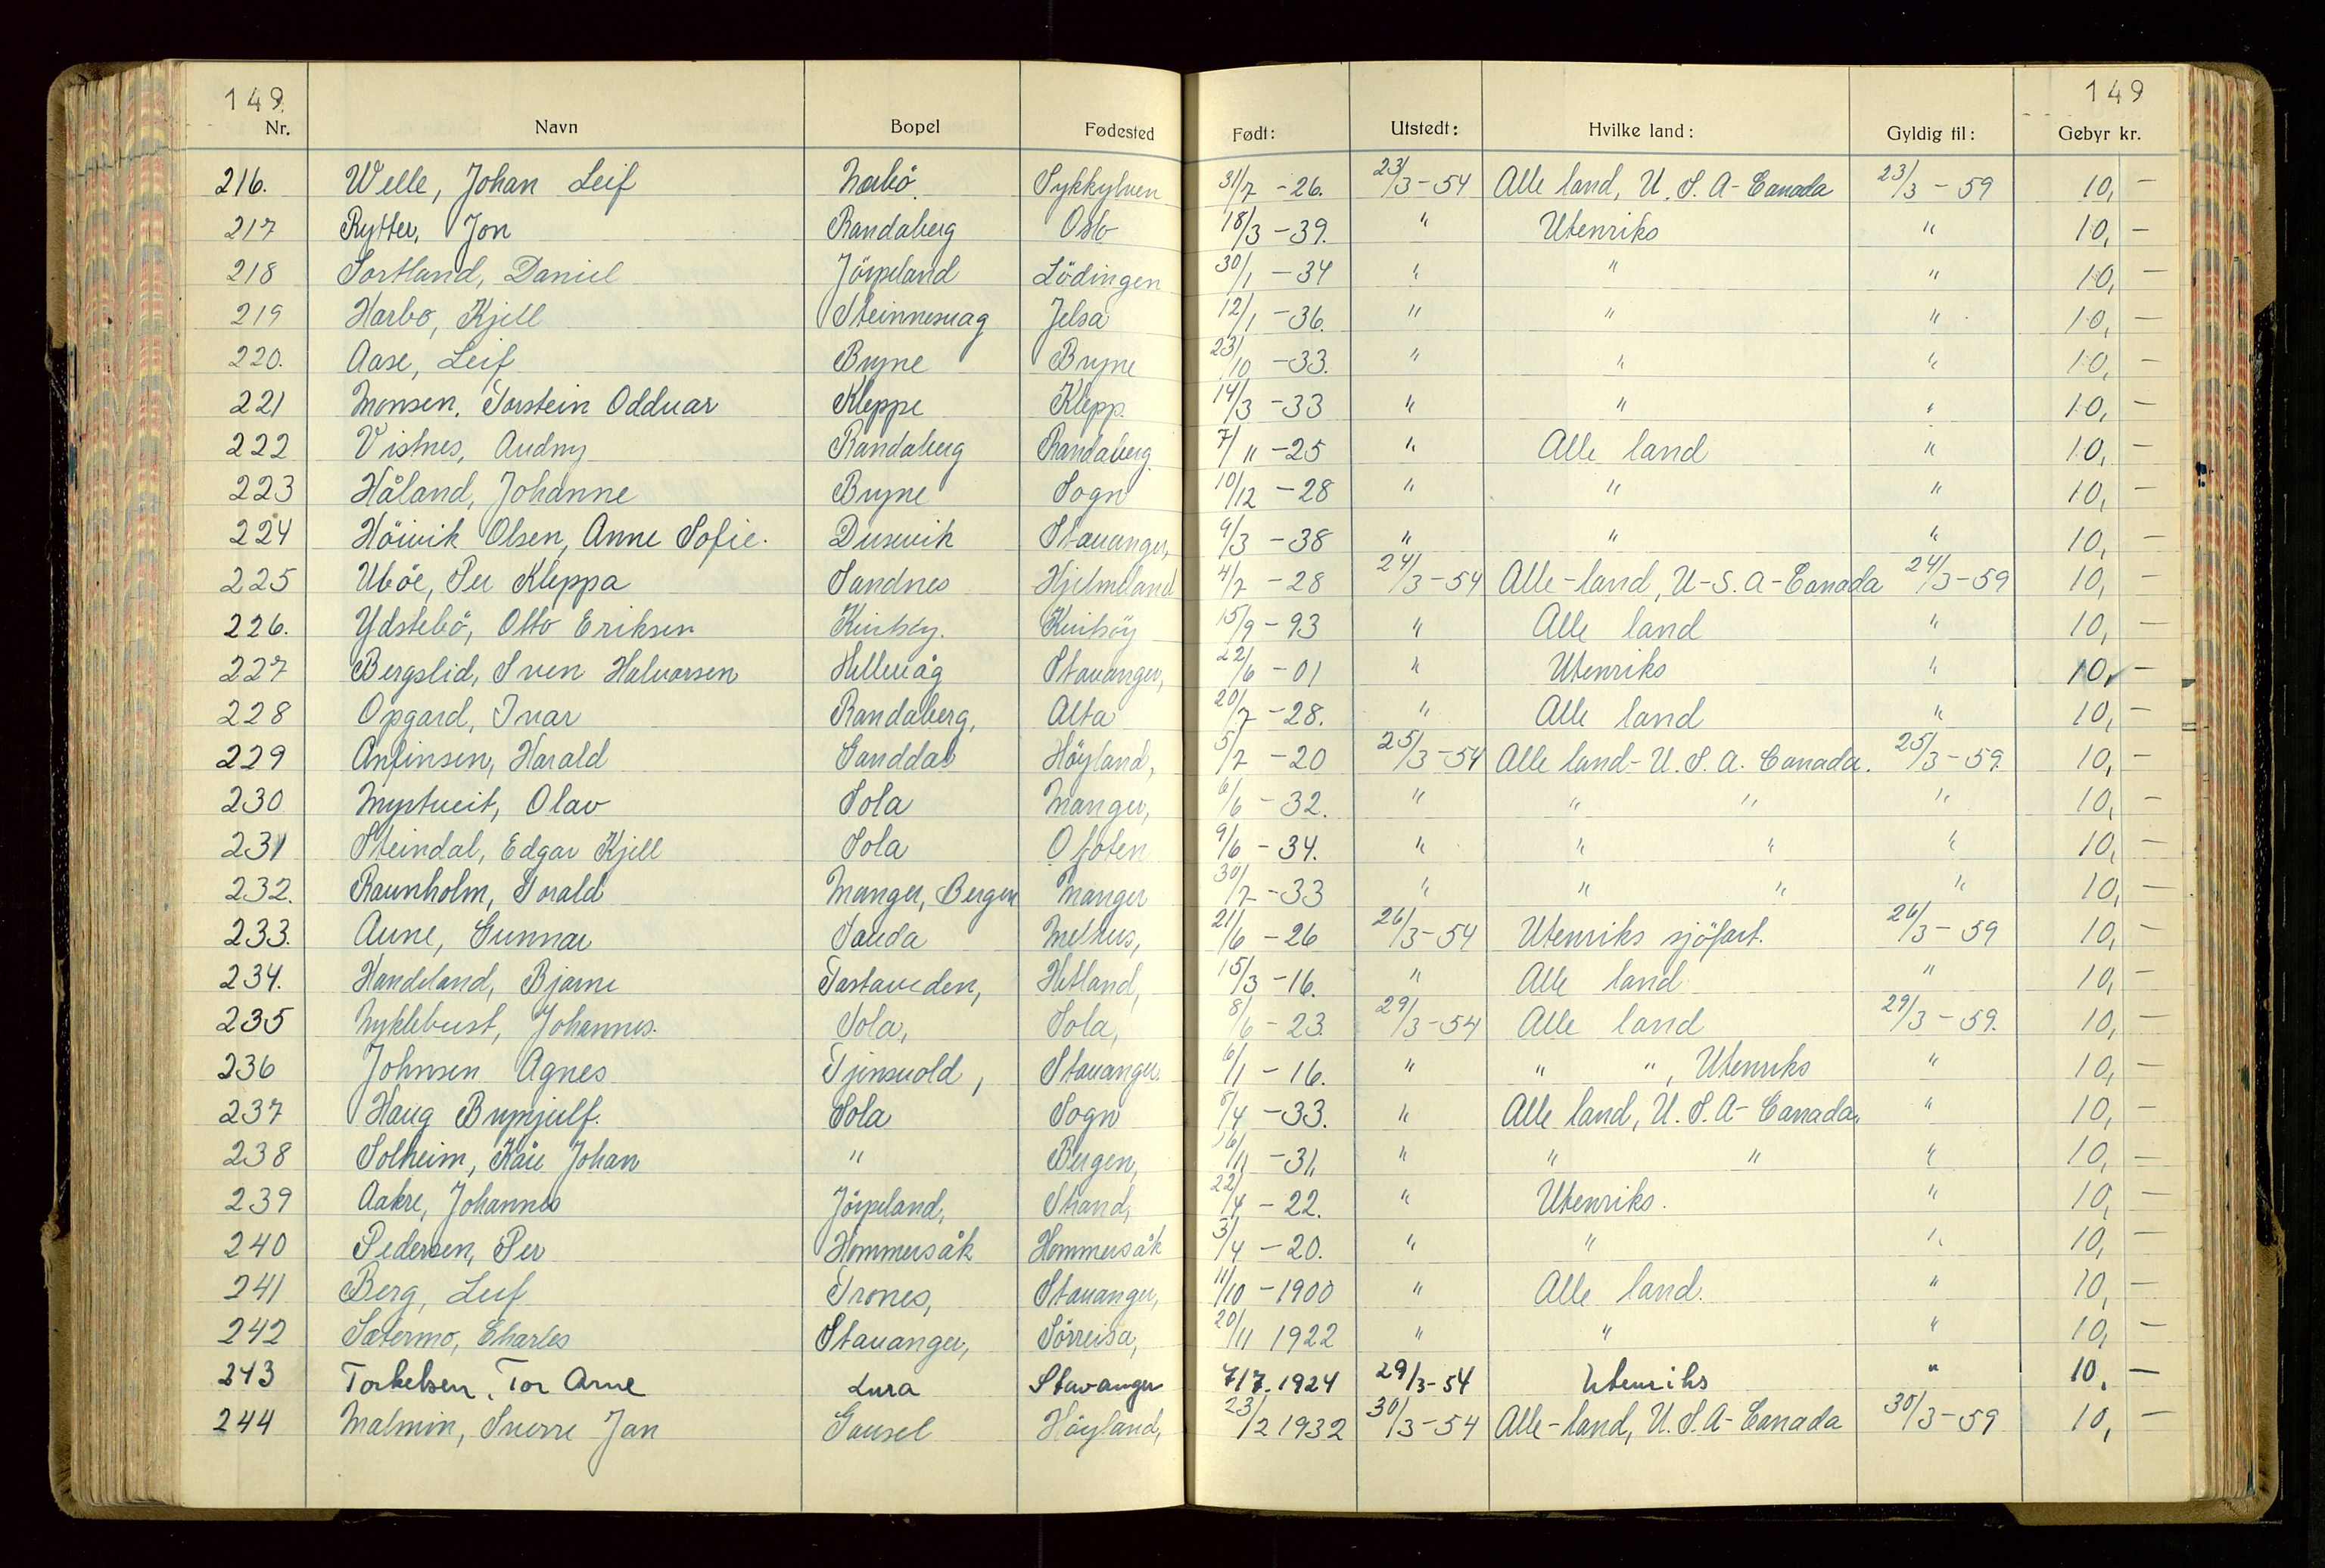 149. 149
Nr. Navn Bopel Fødested Født: Utstedt: Hvilke land: Gyldig til: Gebyr kr.
216. Welle, Johan Leif Nærbö Sykkylven 31/7 -26. 23/3-54 Alle land, U.S.A-Canada 23/3-59 10,-
217 Rytter, Jon Randaberg Oslo 18/3 -39. " Utenriks " 10,-
218 Sortland, Daniel Jörpeland Lödingen 30/1 -34 " " " 10,-
219 Harbo, Kjell Steinnesvag Jelsa 12/1 -36. " " " 10,-
220. Aase, Leif Bryne Bryne 23/10 -33. " " " 10,-
221 Monsen, Torstein Oddvar Kleppe Klepp. 14/3 -33 " " " 10,-
222 Vistnes, Audny Randaberg Randaberg 7/11 -25 " Alle land " 10,-
223 Håland, Johanne Bryne Sogn 10/12 -28 " " " 10,-
224 Höivik Olsen, Anne Sofie. Dusevik Stavanger, 9/3 -38 " " " 10,-
225 Uböe, Per Kleppa Sandnes Hjelmeland 4/7 -28 24/3-54 Alle-land, U-S.A-Canada 24/3-59 10,-
226. Ydstebö, Otto Eriksen Kvitsöy. Kvitsöy 15/9 -93 " Alle land " 10,-
227 Bergslid, Sven Halvorsen Hillevåg Stavanger, 22/6 -01 " Utenriks " 10,-
228 Opgard, Ivar Randaberg, Alta 20/7 -28. " Alle land " 10,-
229 Anfinsen, Harald Ganddal Höyland, 5/7 -20 25/3-54 Alle land-U.S.A. Canada. 25/3-59. 10,-
230 Myrtveit, Olav Sola Manger, 6/6 -32. " " " " 10,-
231 Steindal, Edgar Kjell Sola Ofoten 9/6 -34. " " " " 10,-
232. Ravnholm, Torald Manger, Bergen Manger 30/7 -33 " " " " 10,-
233. Aune, Gunnar Sauda Melhus, 21/6 -26 26/3-54 Utenriks sjöfart. 26/3-59 10,-
234. Handeland, Bjarne Tastaveden, Hetland, 15/3 -16. " Alle land " 10,-
235 Myklebust, Johannes. Sola, Sola, 8/6 -23. 29/3-54 Alle land 29/3-59. 10,-
236 Johnsen Agnes Tjensvold, Stavanger. 6/1 -16. " " ", Utenriks " 10,-
237 Haug Brynjulf. Sola Sogn 8/4 -33. " Alle land, U.S.A-Canada, " 10,-
238 Solheim, Kåre Johan " Bergen, 16/11 -31, " " " " 10,-
239 Aakre, Johannes Jörpeland, Strand, 22/4 -22. " Utenriks. " 10,-
240 Pedersen, Per Hommersåk Hommersåk 3/4 -20. " " " 10,-
241 Berg, Leif Trones, Stavanger, 11/10 -1900 " Alle land. " 10,-
242 Sætermo, Charles Stavanger, Sörreisa, 20/11 1922 " " " 10,-
243 Torkelsen, Tor Arne Lura Stavanger 7/7.1924 29/3-54 Utenriks " 10,-
244 Malmin, Sverre Jan Gausel Höyland, 23/2 1932 30/3-54 Alle-land, U.S.A-Canada 30/3-59 10,-